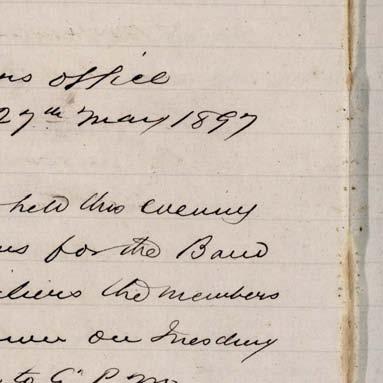 office
27th May 1897
held this evening
for the Band
the members
on Tuesday
to 6 P.M.